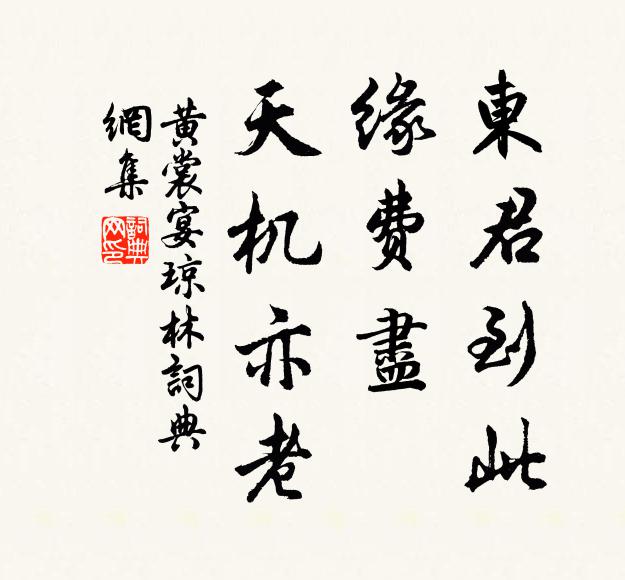 東君到此
緣費盡
天机亦老
黃裳宴琼林詞典
網集
詞典
网印